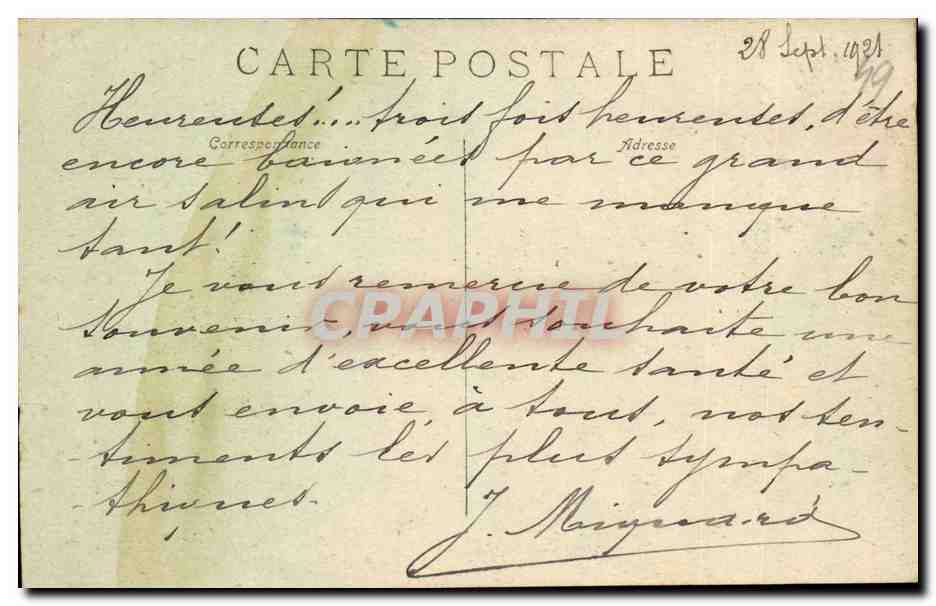 28 Sept. 1921
59
CARTE POSTALE
Heureuses!.... trois fois heureuses, d'être
Correspondance
Adresse
encore baignées par ce grand
air salin qui me manque
tant!
Je vous remercie de votre bon
CPAPHIL
souvenir, vous souhaite une
année d'excellente santé et
vous envoie à tous, nos sen-
-timents les plus sympa-
-thiques.
J.